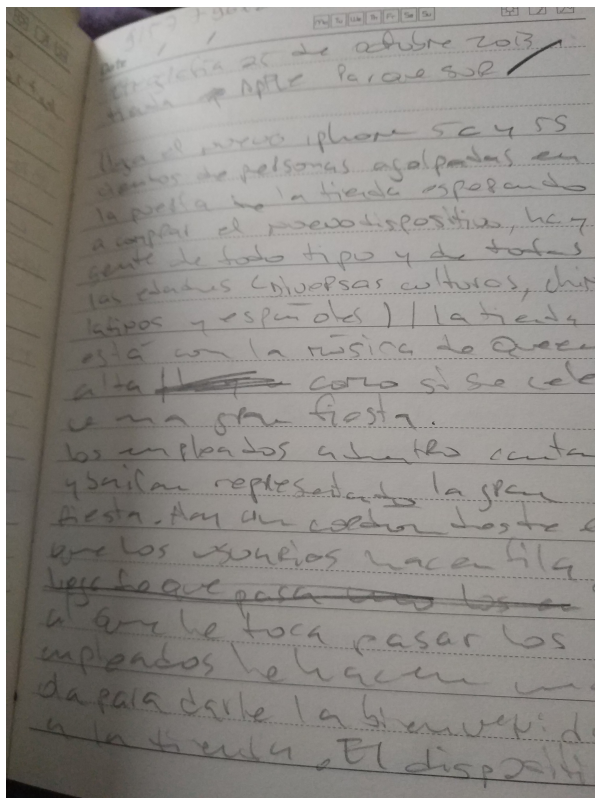 Mo Tu We Th Fr Sa Su
Date
25 de octubre 2013
tienda Apple Parque SUR
llega el nuevo iphone 5c y 5S
cientos de personas agolpadas en
la puerta de la tienda esperando
a comprar el nuevo dispositivo, hay
gente de todo tipo y de todas
las edades (Diversas culturas, chin
latinos y españoles) // la tienda
está con la música de Queen
alta como si se cele
una gran fiesta.
los empleados adentro canta
y bailan representando la gran
fiesta. Hay un cordon
que los usuarios hacen fila
al que le toca pasar los
empleados le hacen
da para darle la bienvenid
a la tienda. El dispositi